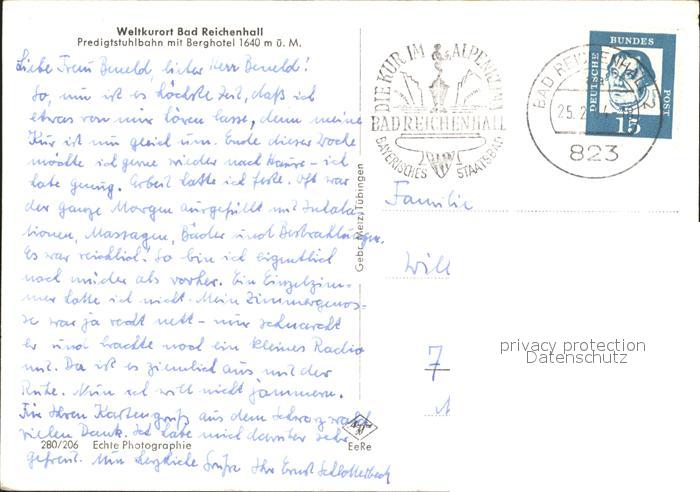 Weltkurort Bad Reichenhall
Predigtstuhlbahn mit Berghotel 1640 m ü. M.
Liebe Frau Beneld, lieber Herr Beneld!
So, nun ist es höchste Zeit, daß ich
etwas von mir hören lasse, denn meine
Kur ist nun gleich um. Ende dieser Woche
möchte ich gerne wieder nach Hause – ich
habe genug. Arbeit hatte ich feste. Oft war
der ganze Morgen ausgefüllt mit Inhala-
tionen, Massagen, Bäder und Bestrahlungen.
Es war reichlich! So bin ich eigentlich
noch müder als vorher. Ein Einzelzim-
mer hatte ich nicht. Mein Zimmergenos-
se war ja recht nett – nur schnarcht
er und brachte noch ein kleines Radio
mit. Da ist es ziemlich aus mit der
Ruhe. Nun ich will nicht jammern.
Für Ihren Kartengruß aus dem Schwarzwald
vielen Dank. Ich habe mich darüber sehr
gefreut. Nun herzliche Grüße Ihr Ernst Schlotterbeck
280/206 Echte Photographie
Gebr. Metz, Tübingen
EeRe
DIE KUR IM ALPENKLIMA
BAD REICHENHALL
BAYERISCHES STAATSBAD
BAD REICHENHALL 2
25. 2.
823
DEUTSCHE BUNDES POST
15
Familie
Will
7
privacy protection
Datenschutz